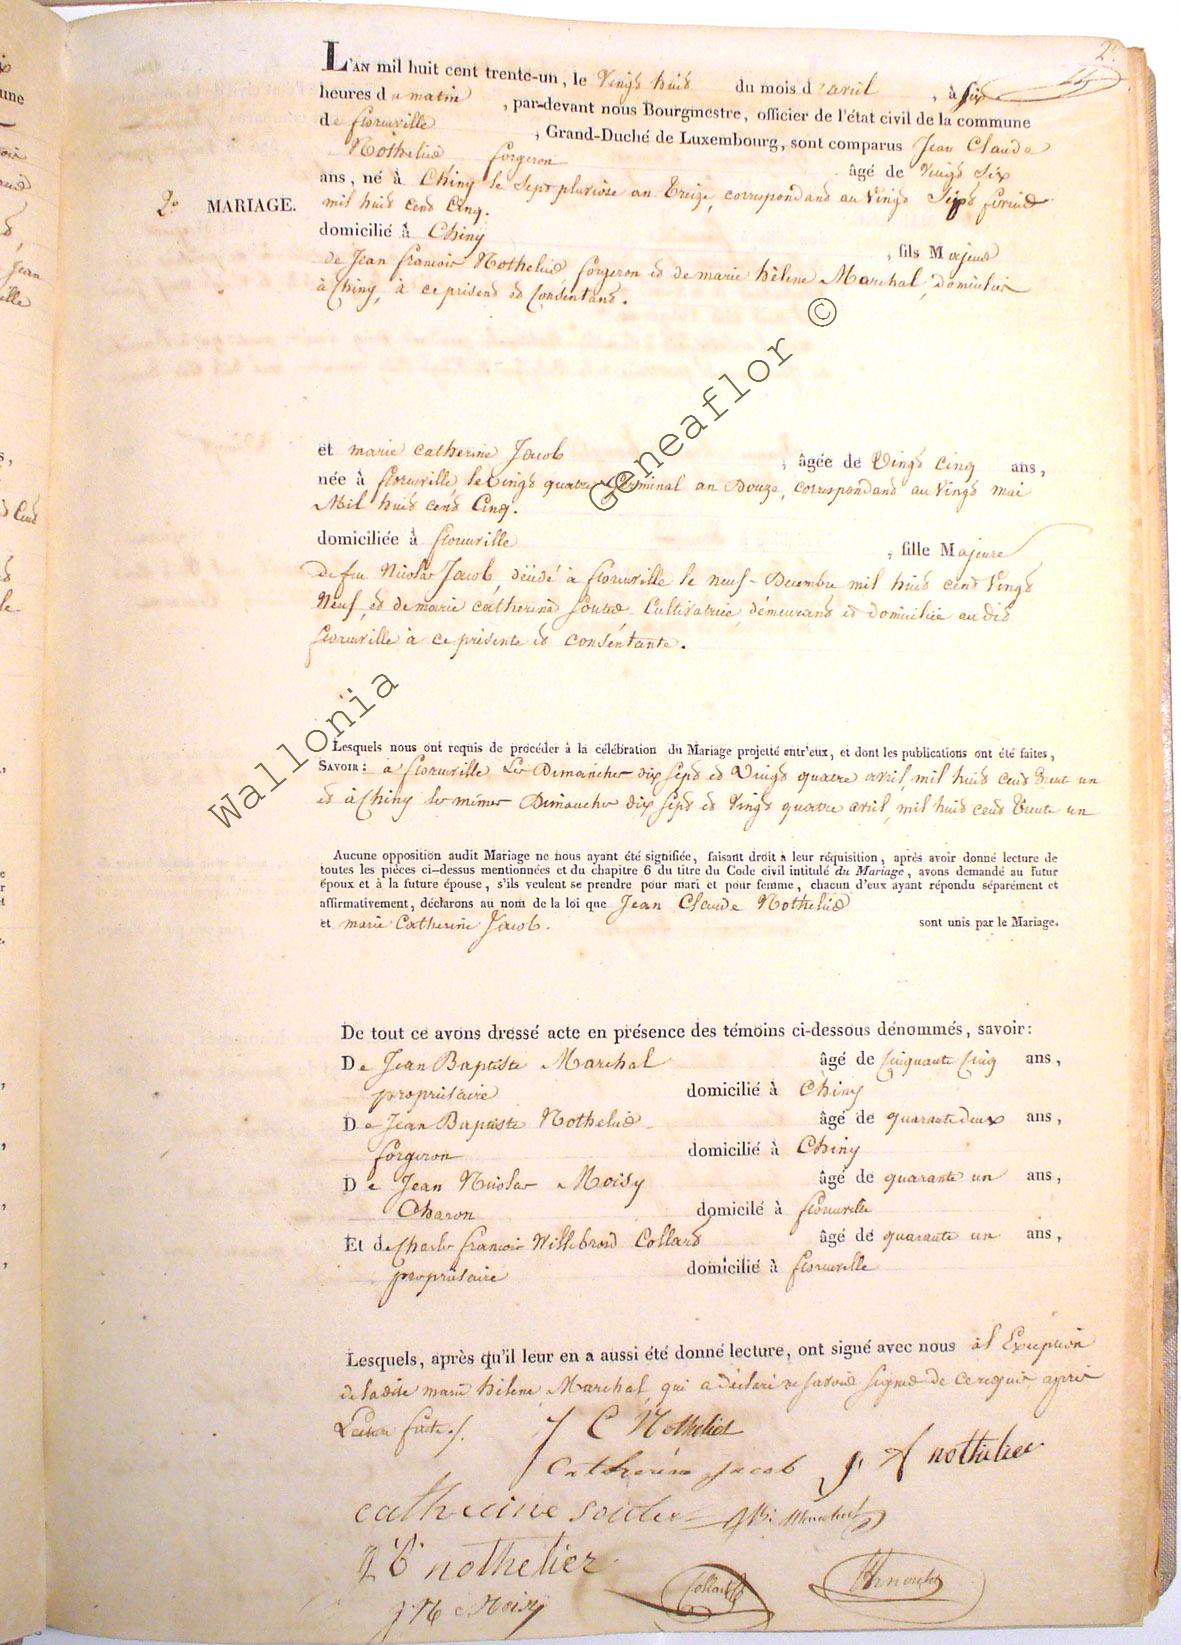 2.
L'AN mil huit cent trente-un, le Vingt huit du mois d'avril, à six
heures du matin, par-devant nous Bourgmestre, officier de l'état civil de la commune
de florenville, Grand-Duché de Luxembourg, sont comparus Jean Claude
Nothelier forgeron âgé de Vingt Six
ans, né à Chiny le Sept pluviose an Treize, correspondant au Vingt Sept
2.° MARIAGE.
mil huit cent Cinq.
domicilié à Chiny, fils Majeur
de Jean francois Nothelier forgeron et de marie hélène Marchal, domiciliés
à Chiny, à ce présent et Consentant.
et marie catherine Jacob, âgée de Vingt Cinq ans,
née à florenville le Vingt quatre Germinal an Douze, correspondant au Vingt mai
Mil huit cent Cinq.
domiciliée à florenville, fille Majeure
de feu Nicolas Jacob, décédé à florenville le neuf Decembre mil huit cent Vingt
Neuf, et de marie catherine Souter Cultivatrice, démeurant et domiciliée au dit
florenville à ce présente et conséntante.
Geneaflor ©
Wallonïa
Lesquels nous ont requis de procéder à la célébration du Mariage projetté entr'eux, et dont les publications ont été faites,
SAVOIR: à florenville Les Dimanches dix sept et Vingt quatre avril, mil huit cent trente un
et à Chiny les mêmes Dimanches dix sept et Vingt quatre avril, mil huit cent Trente un
Aucune opposition audit Mariage ne nous ayant été signifiée, faisant droit à leur réquisition, après avoir donné lecture de
toutes les pièces ci-dessus mentionnées et du chapitre 6 du titre du Code civil intitulé du Mariage, avons demandé au futur
époux et à la future épouse, s'ils veulent se prendre pour mari et pour femme, chacun d'eux ayant répondu séparément et
affirmativement, déclarons au nom de la loi que Jean Claude Nothelier
et marie Catherine Jacob. sont unis par le Mariage.
De tout ce avons dressé acte en présence des témoins ci-dessous dénommés, savoir:
De Jean Baptiste Marchal âgé de Cinquante Cinq ans,
propriétaire domicilié à Chiny
De Jean Baptiste Nothelier âgé de quarante deux ans,
forgeron domicilié à Chiny
De Jean Nicolas Moisy âgé de quarante un ans,
Charon domicilé à florenville
Et de Charles francois Willebrord Collard âgé de quarante un ans,
propriétaire domicilié à florenville
Lesquels, après qu'il leur en a aussi été donné lecture, ont signé avec nous à l'Exception
de ladite marie hélène Marchal, qui a déclaré ne savoir signer de ce requis après
Lecture faite.
J C Nothelier
Catherine Jacob J. f nothelier
catherine souter
J B nothelier
Collard
J. N Moisy